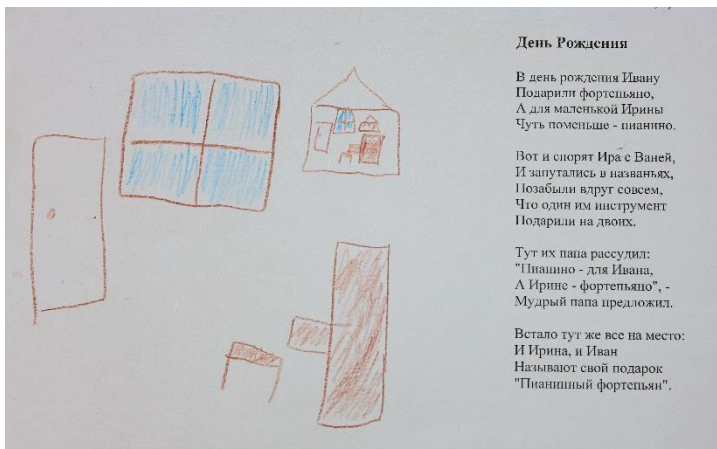 День Рождения
В день рождения Ивану
Подарили фортепьяно,
А для маленькой Ирины
Чуть поменьше - пианино.
Вот и спорят Ира с Ваней,
И запутались в названьях,
Позабыли вдруг совсем,
Что один им инструмент
Подарили на двоих.
Тут их папа рассудил:
"Пианино - для Ивана,
А Ирине - фортепьяно", -
Мудрый папа предложил.
Встало тут же все на место:
И Ирина, и Иван
Называют свой подарок
"Пианинный фортепьян".